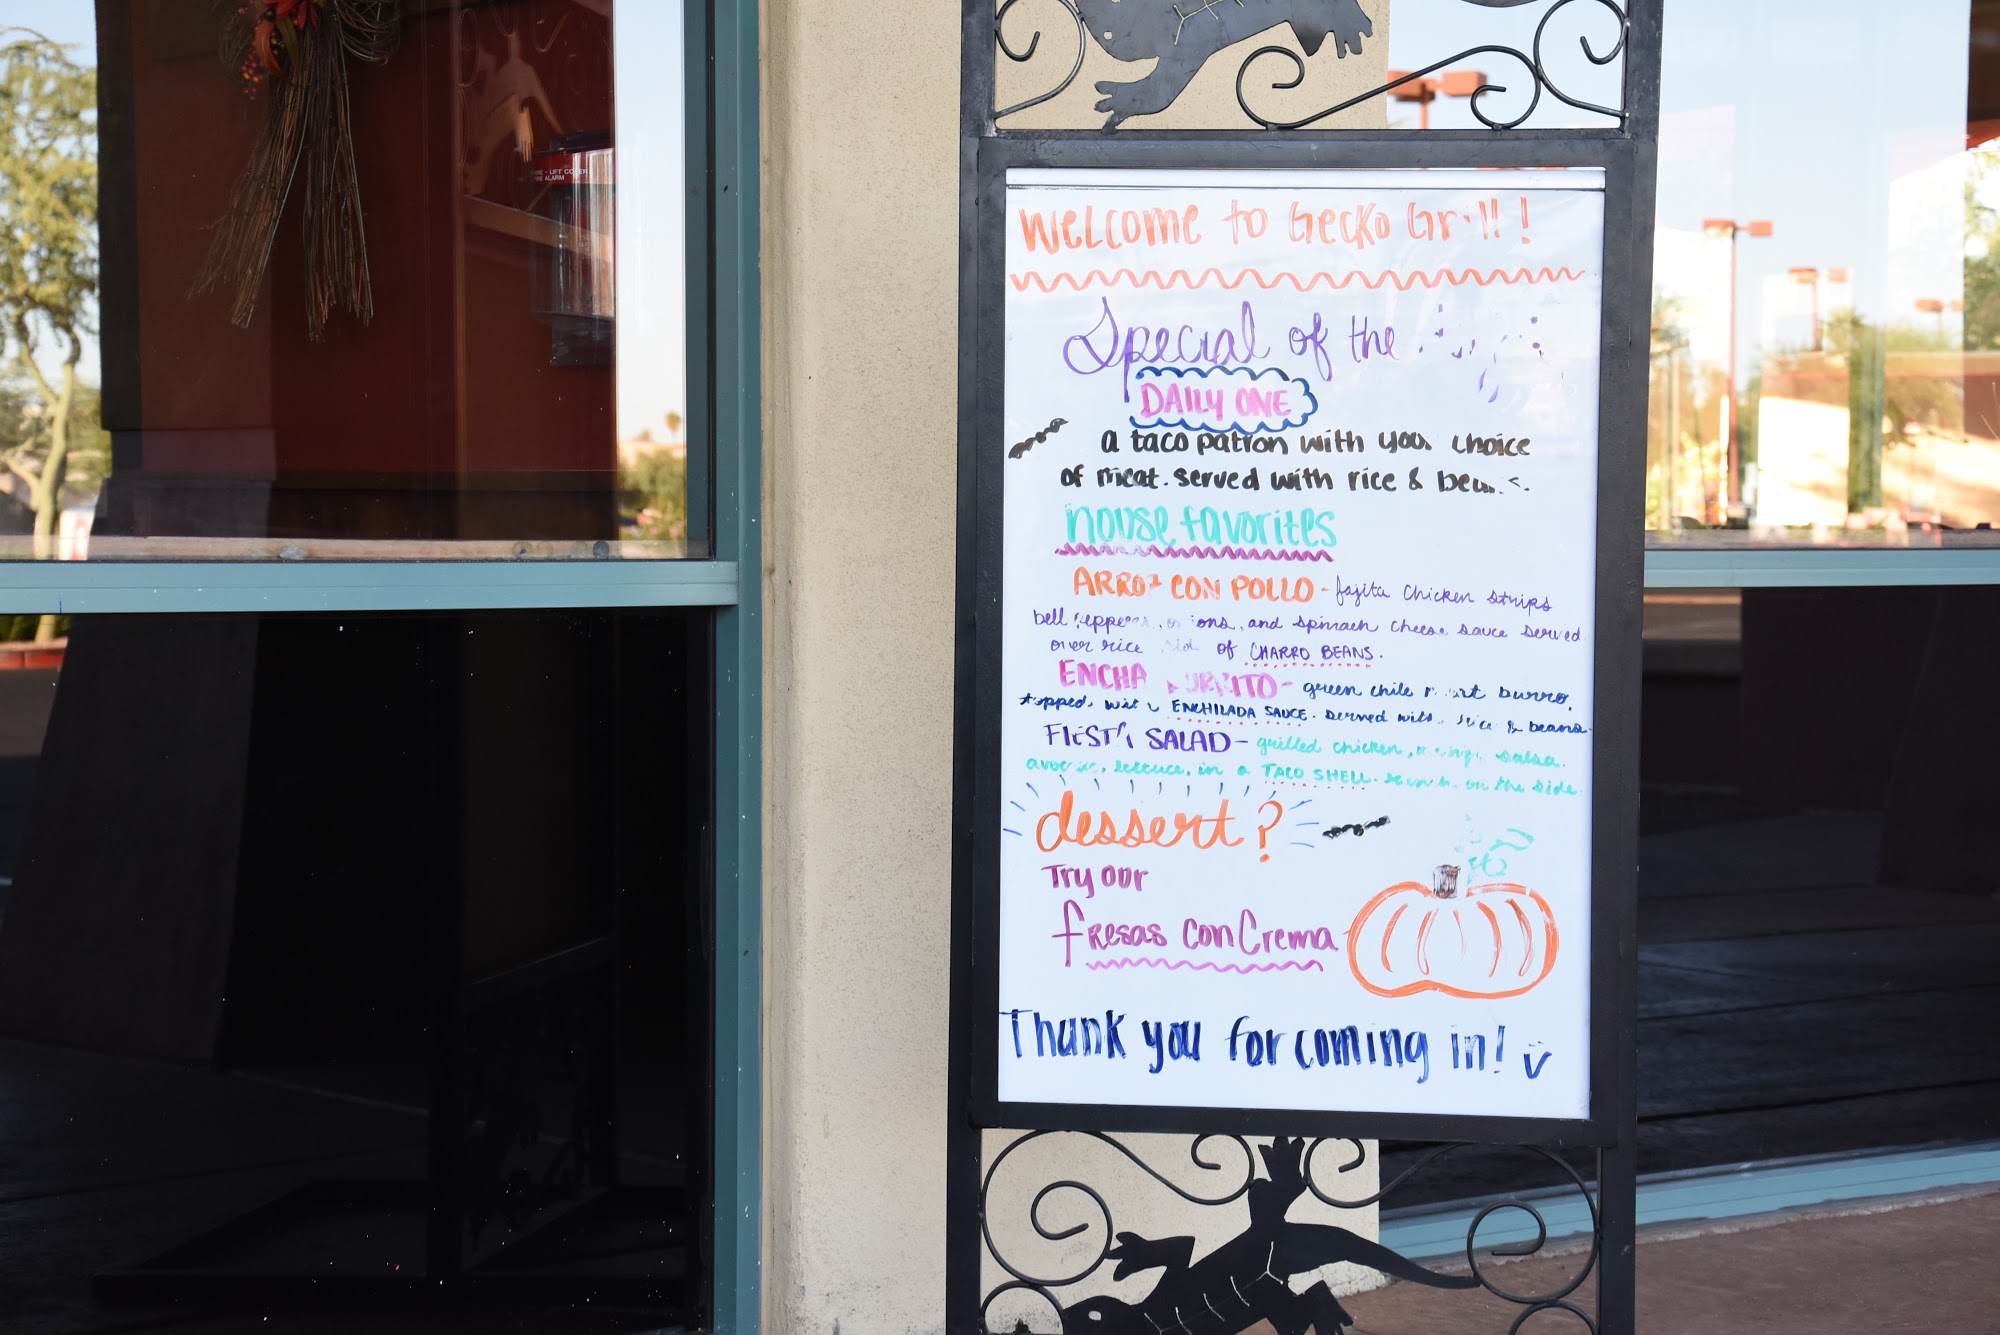 LIFT COVER
FIRE ALARM
Welcome to Gecko Grill!
Special of the
DAILY ONE
a taco patron with your choice
of meat. served with rice & beans.
house favorites
ARROZ CON POLLO - fajita chicken strips
bell peppers, onions, and spinach cheese sauce served
over rice side of CHARRO BEANS.
ENCHA BURRITO - green chile meat burro,
topped with ENCHILADA SAUCE. served with rice & beans.
FIESTA SALAD - grilled chicken, mango salsa.
avocado, lettuce, in a TACO SHELL. ranch on the side.
dessert?
Try our
fresas con Crema
Thank you for coming in!